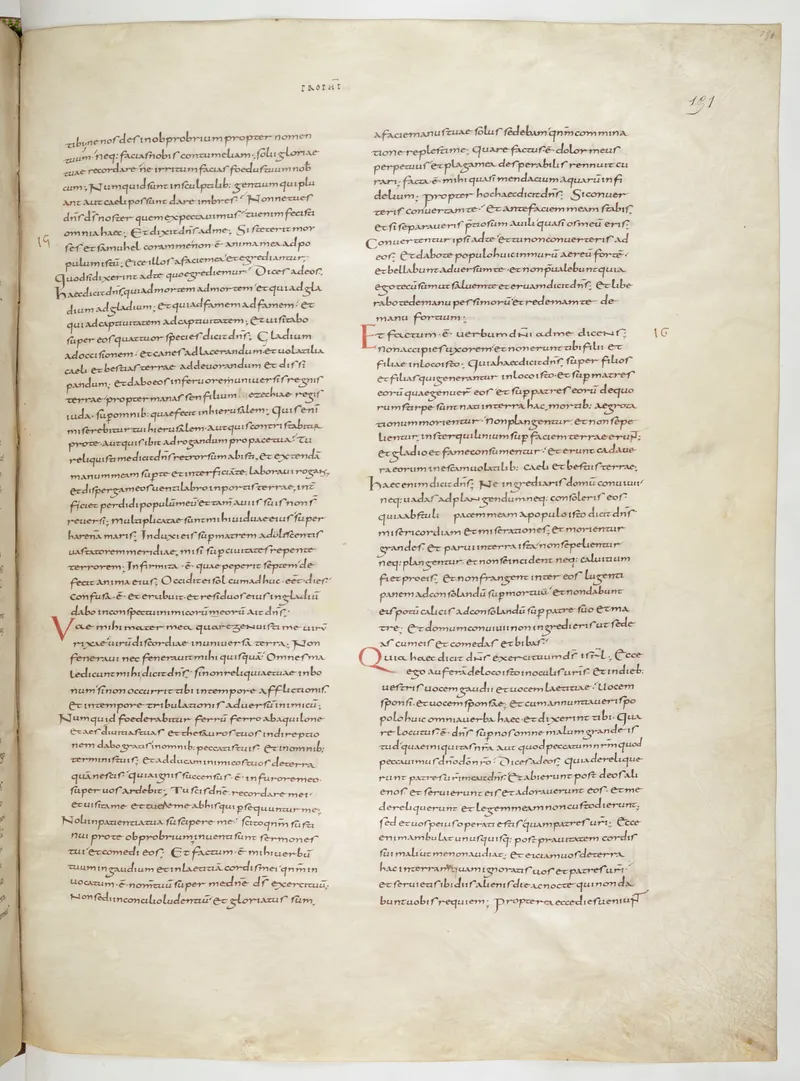 191
15
tibi; ne nos des in obprobrium propter nomen
tuum; neq: facias nobis contumeliam; solii gloriae
tuae recordare ne irritum facias foedus tuum nob
cum; Numquid sunt in sculptilib: gentium qui plu
ant aut caeli possunt dare imbres? Nonne tu es
dns ds noster quem expectauimus? tu enim fecisti
omnia haec; Et dixit dns ad me; Si steterit mor
ses et samuhel coram me non ē anima mea ad po
pulum istū; Eice illos a facie mea et egrediantur;
Quod si dixerint ad te quo egrediemur? Dices ad eos;
Haec dicit dns; qui ad mortem ad mortem et qui ad gla
dium ad gladium; et qui ad famem ad famem; et
qui ad captiuitatem ad captiuitatem; et uisitabo
super eos quattuor species dicit dns; Gladium
ad occisionem; et canes ad lacerandum et uolatilia
caeli et bestias terrae ad deuorandum et dissi
pandum; et dabo eos in feruorem uniuersis regnis
terrae propter manassen filium ezechiae regis
iuda; sup omnib: quae fecit in hierusalem; Quis enī
miserebitur tui hierusalem? Aut quis contristabitur
pro te? Aut quis ibit ad rogandum pro pace tua? Tu
reliquisti me dicit dns retrorsum abisti; et extendā
manum meam sup te et interficiā te; laboraui rogans;
et dispergam eos uentilabro in portis terrae; inter
fici et perdidi populū meū et tamen a uiis suis non sunt
reuersi; Multiplicatae sunt mihi uiduae eius super
harenā maris; Induxi eis sup matrem adulescentis
uastatorem meridiae; misi sup ciuitates repente
terrorem; Infirmita ē quae peperit septem de
fecit anima eius; Occidit ei sol cum adhuc eēt dies
Confusa ē et erubuit et residuos eius in gladiū
dabo in conspectu inimicorū meorū ait dns;
Vae mihi mater mea quare genuisti me uirū
rixae uirū discordiae in uniuersa terra; Non
feneraui nec fenerauit mihi quisquā Omnes ma
ledicunt mihi dicit dns; si non reliquiae tuae in bo
num si non occurri tibi in tempore afflictionis
et in tempore tribulationis aduersū inimicū;
Numquid foederabitur ferrū ferro ab aquilone
et aes diuitias tuas et thesauros tuos in direptio
nem dabo gratis in omnib: peccatis tuis et in omnib:
terminis tuis; et adducam inimicos tuos de terra
quā nescis quia ignis succensus ē in furore meo
super uos ardebit; Tu scis dne recordare mei
et uisita me et tuere me ab his qui psequuntur me;
Noli in patientia tua suscipere me; scito qnm susti
nui pro te obprobrium; inuenti sunt sermones
tui et comedi eos; Et factum ē mihi uerbū
tuum in gaudium et in laetitiā cordis mei qnm in
uocatum ē nomen tuū super me dne ds exercituū;
Non sedi in concilio ludentiū et gloriatus sum
a facie manus tuae solus sedebam qnm commina
tione replesti me; Quare factus ē dolor meus
perpetuus et plaga mea desperabilis rennuit cu
rari; facta ē mihi quasi mendacium aquarū infi
delium; Propter hoc haec dicit dns; Si conuer
teris conuertam te Et ante faciem meam stabis
et si separaueris pretiosum a uili quasi os meū eris;
Conuertentur ipsi ad te et tu non conuerteris ad
eos; Et dabo te populo huic in murū aereū forte
et bellabunt aduersum te et non preualebunt quia
ego tecū sum ut saluem te et eruam dicit dns; et libe
rabo te de manu pessimorū et redemam te de
manu fortium;
16
Et factum ē uerbum dni ad me dicens;
non accipies uxorem et non erunt tibi filii et
filiae in loco isto; Quia haec dicit dns; super filios
et filias qui generantur in loco isto et sup matres
eorū quae genuerunt eos et sup patres eorū de quo
rum stirpe sunt nati in terra hac, mortib: aegrota
tionum morientur Non plangentur et non sepe
lientur, in sterquilinium sup faciem terrae erunt;
et gladio et fame consumentur et erunt cadaue
ra eorum in escam uolatilib: caeli et bestiis terrae;
Haec enim dicit dns; Ne ingrediaris domū conuiuii
neq: uadas ad plangendum neq: consoleris eos
quia abstuli pacem meam a populo isto dicit dns
misericordiam et miserationes; et morientur
grandes et parui in terra ista; non sepelientur
neq: plangentur et non se incident neq: caluitium
fiet pro eis; Et non frangent inter eos lugenti
panem ad consolandū sup mortuo et non dabunt
eis potū calicis ad consolandū sup patre suo et ma
tre; Et domum conuiuii non ingredieris ut sede
as cum eis et comedas et bibas;
Quia haec dicit dns exercituum ds isrl; Ecce
ego auferā de loco isto in oculis uris; Et in dieb:
uestris uocem gaudii et uocem laetitiae Uocem
sponsi et uocem sponsae; et cum annuntiaueris po
polo huic omnia uerba haec et dixerint tibi Qua
re locutus ē dns sup nos omne malum grande is
tud quae iniquitas nra Aut quod peccatum nrm quod
peccauimus dno do nro? Dices ad eos; Quia derelique
runt patres uri me ait dns; Et abierunt post deos ali
enos et seruierunt eis et adorauerunt eos; et me
dereliquerunt et legem meam non custodierunt;
sed et uos peius operati estis quam patres uri; Ecce
enim ambulat unusquisq: post prauitatem cordis
sui mali ut me non audiat; et eiciam uos de terra
hac in terram quam ignoratis uos et patres uri
et seruietis ibi diis alienis die ac nocte qui non da
bunt uobis requiem; Propterea ecce dies ueniunt